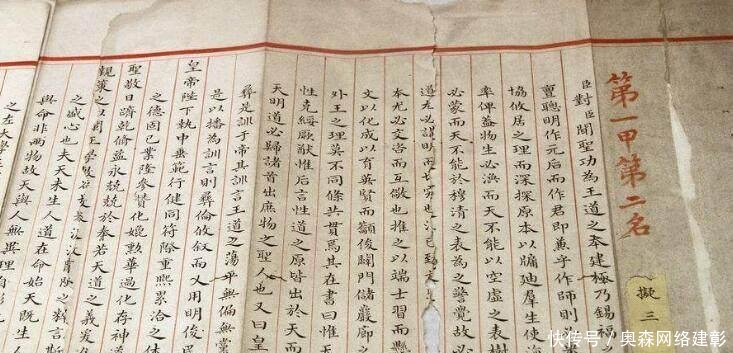 第一甲第二名
擬三
臣對臣聞聖功為王道之本建極乃錫福之
亶聰明作元后而作君即兼乎作師則
協攸居之理而深探原本以牖迪羣生使
率俾益物生必渙而天不能以空虛之表樹
必蒙而天不能於穆清之表為之警覺故必
道
本尤必交咨而互儆也推之以端士習而
文以化成以育英賢而顓俊闢門儲巖廊之
外王之理莫不同條共貫焉其在書曰惟天
性克綏厥猷惟后言性道之原皆出於天而
天明道必歸諸首出庶物之聖人也又曰皇
彞是訓于帝其訓言王道之蕩平無偏無黨
是以播為訓言則彞倫攸敘而又用明俊民
皇帝陛下執中垂範行健同符際重熙累洽之
之德固已業隆參贊化媲勲華過化存神
聖敬日躋乾脩益永兢兢於奉若天道之義
親策之
之誠心也夫天未生人道在命始天既生人
與命非兩物故天與人無異理
之左大學
快传号／奥森网络建彰